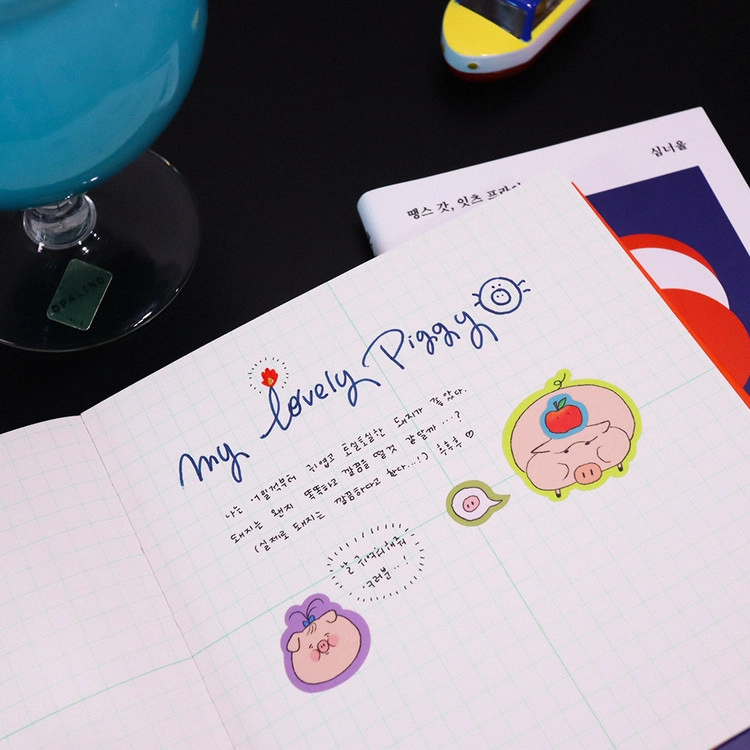 심너울
땡스 갓, 잇츠 프라이
OPALINO
my lovely Piggy
나는 어릴적부터 귀엽고 토실토실한 돼지가 좋았다.
돼지는 왠지 똑똑하고 깔끔을 떨것 같달까...?
(실제로 돼지는 깔끔하다고 한다...!) 후후후 ♡
날 귀여워해줘
여러분...!